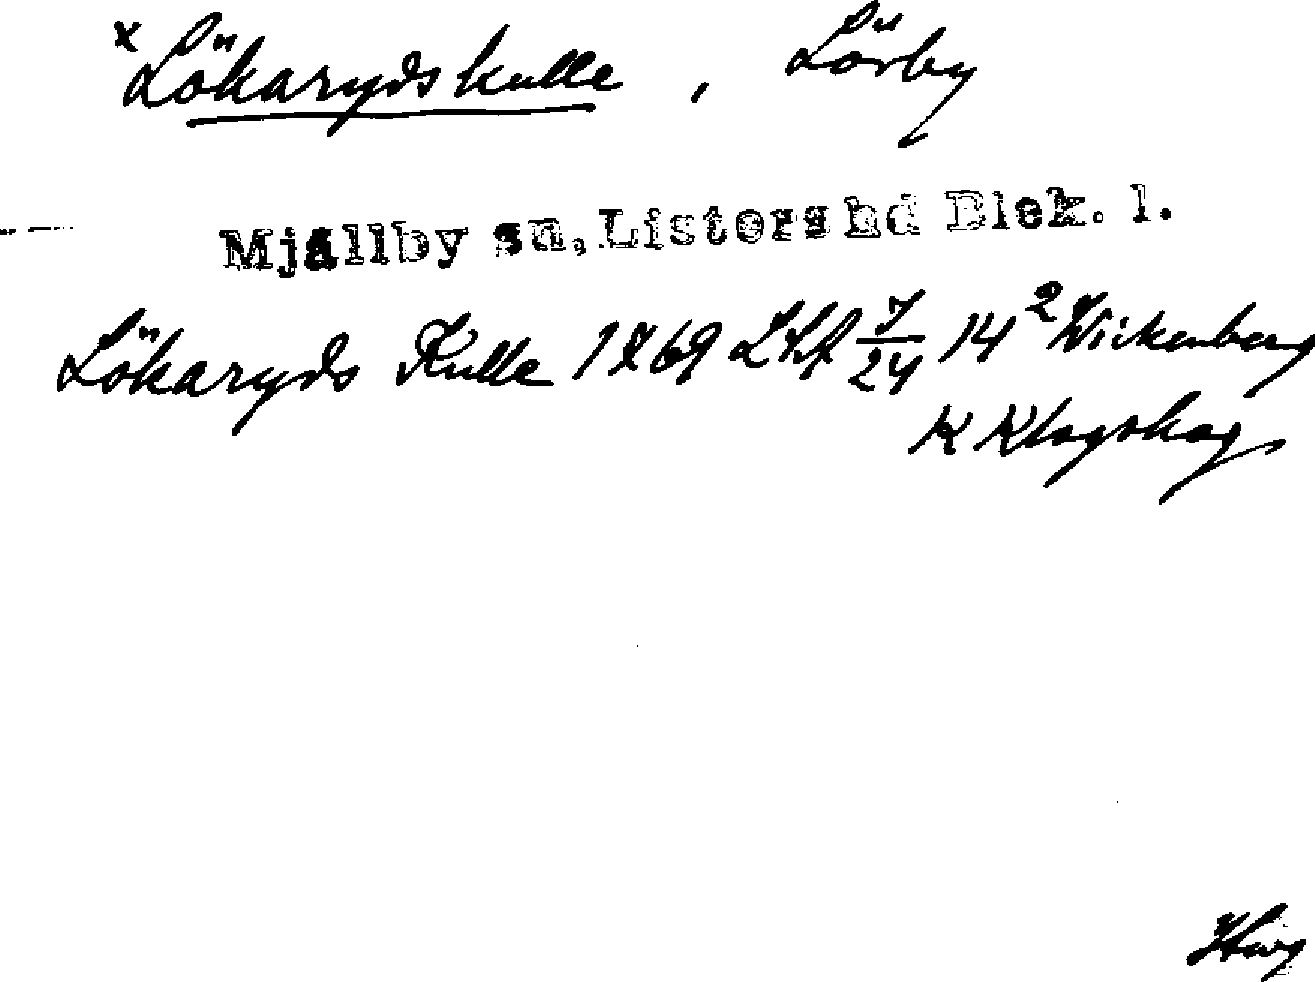 x Lökaryds kulle, Lörby
Mjällby sn, Listers hd Blek. l.
Lökaryds Kulle 1769 LSA 7/24 14² Wickenberg
K Klogskog